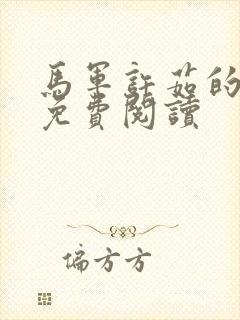 馬軍許茹的
免費閱讀
偏方方